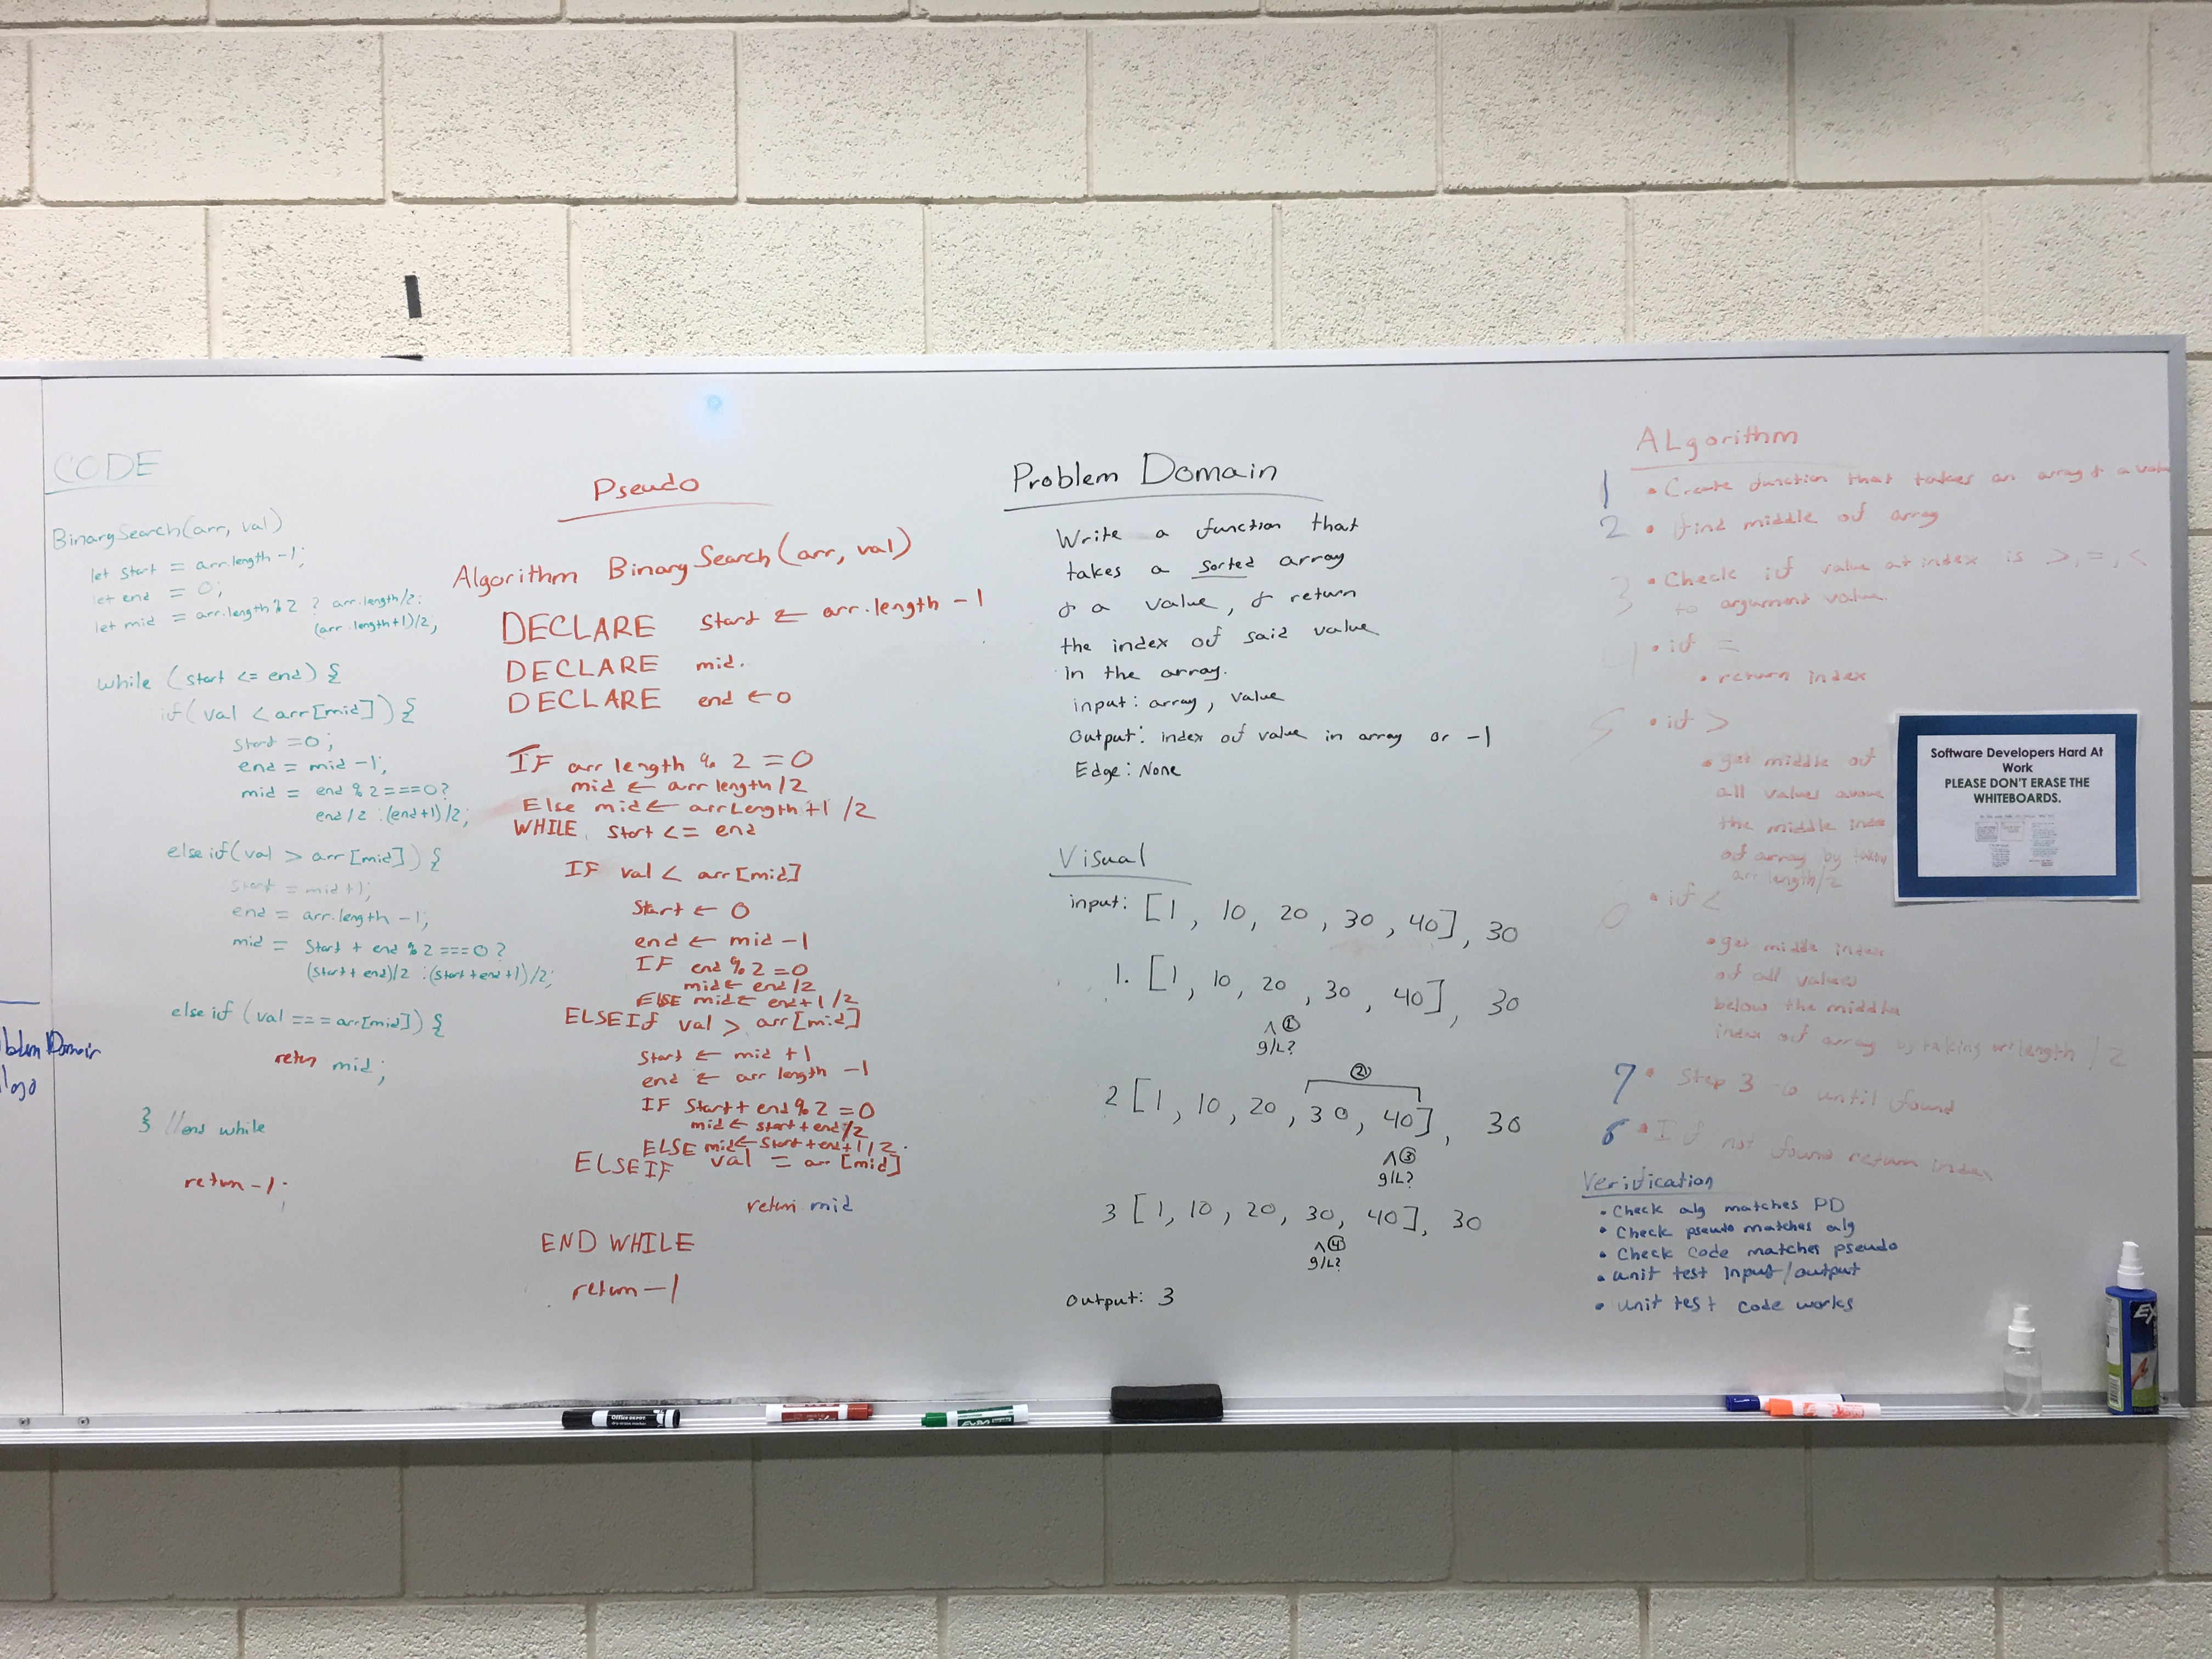 CODE
BinarySearch(arr, val)
let start = arr.length -1;
let end = 0;
let mid = arr.length % 2 ? arr.length/2 :
(arr.length+1)/2;
while (start <= end) {
if (val < arr[mid]) {
start = 0;
end = mid -1;
mid = end % 2 === 0 ?
end / 2 : (end+1)/2;
else if (val > arr[mid]) {
start = mid+1;
end = arr.length -1;
mid = start + end % 2 === 0 ?
(start + end)/2 : (start+end+1)/2;
else if (val === arr[mid]) {
return mid;
} //end while
return -1;
blem Domain
lgo
Pseudo
Algorithm BinarySearch(arr, val)
DECLARE start ← arr.length -1
DECLARE mid.
DECLARE end ← 0
IF arr length % 2 = 0
mid ← arr length /2
Else mid ← arr Length +1 /2
WHILE start <= end
IF val < arr[mid]
Start ← 0
end ← mid -1
IF end % 2 = 0
mid ← end /2
ELSE mid ← end +1 /2
ELSEIf val > arr[mid]
Start ← mid +1
end ← arr length -1
IF Start + end % 2 = 0
mid ← start + end /2
ELSE mid ← start + end +1 /2.
ELSEIF val = arr [mid]
return mid
END WHILE
return -1
Problem Domain
Write a function that
takes a sorted array
& a value, & return
the index of said value
In the array.
input: array, value
output: index of value in array or -1
Edge: None
Visual
input: [1, 10, 20, 30, 40], 30
1. [1, 10, 20, 30, 40], 30
^ ①
g/L?
②
2 [1, 10, 20, 30, 40], 30
^ ③
g/L?
3 [1, 10, 20, 30, 40], 30
^ ④
g/L?
Output: 3
ALgorithm
1 • Create function that takes an array & a value
2 • find middle of array
3 • Check if value at index is >, =, <
to argument value.
4 • if =
• return index
5 • if >
• get middle of
all values above
the middle index
of array by
arr length/2
• if <
• get middle index
of all values
below the middle
index of array by taking arr length / 2
7 • Step 3 until found
8 • If not found return index
Software Developers Hard At
Work
PLEASE DON'T ERASE THE
WHITEBOARDS.
Verification
• Check alg matches PD
• Check pseudo matches alg
• Check code matches pseudo
• unit test input/output
• unit test code works
Office DEPOT
EXPO
EX